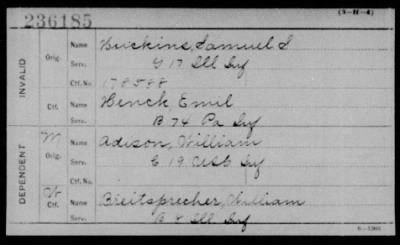 236185
(3-H-4)
INVALID
Orig.
Name Buckins, Samuel S
Serv. G 17 Ill Inf
Ctf. No. 178588
Ctf.
Name Henck, Emil
Serv. B 74 Pa Inf
DEPENDENT
W
Orig.
Name Adison, William
Serv. C 19 USC Inf
Ctf. No.
W
Ctf.
Name Breitsprecher, William
Serv. A 8 Ill Inf